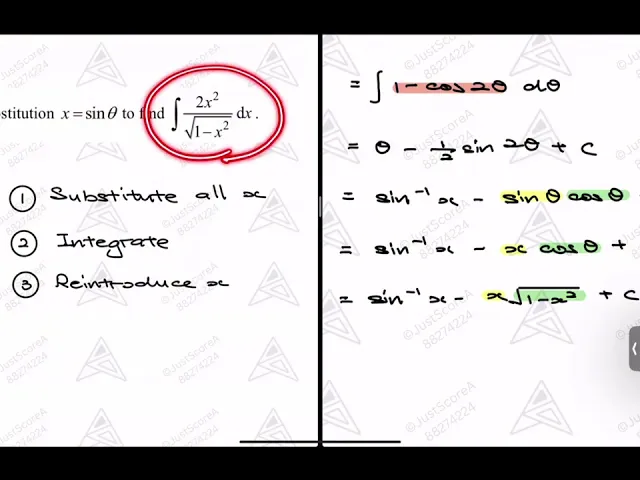 stitution x = sin θ to find ∫ 2x²/√(1−x²) dx.
① Substitute all x
② Integrate
③ Reintroduce x
= ∫ 1 − cos 2θ dθ
= θ − ½ sin 2θ + C
= sin⁻¹ x − sin θ cos θ
= sin⁻¹ x − x cos θ +
= sin⁻¹ x − x√(1−x²) + C
©JustScoreA
88274224